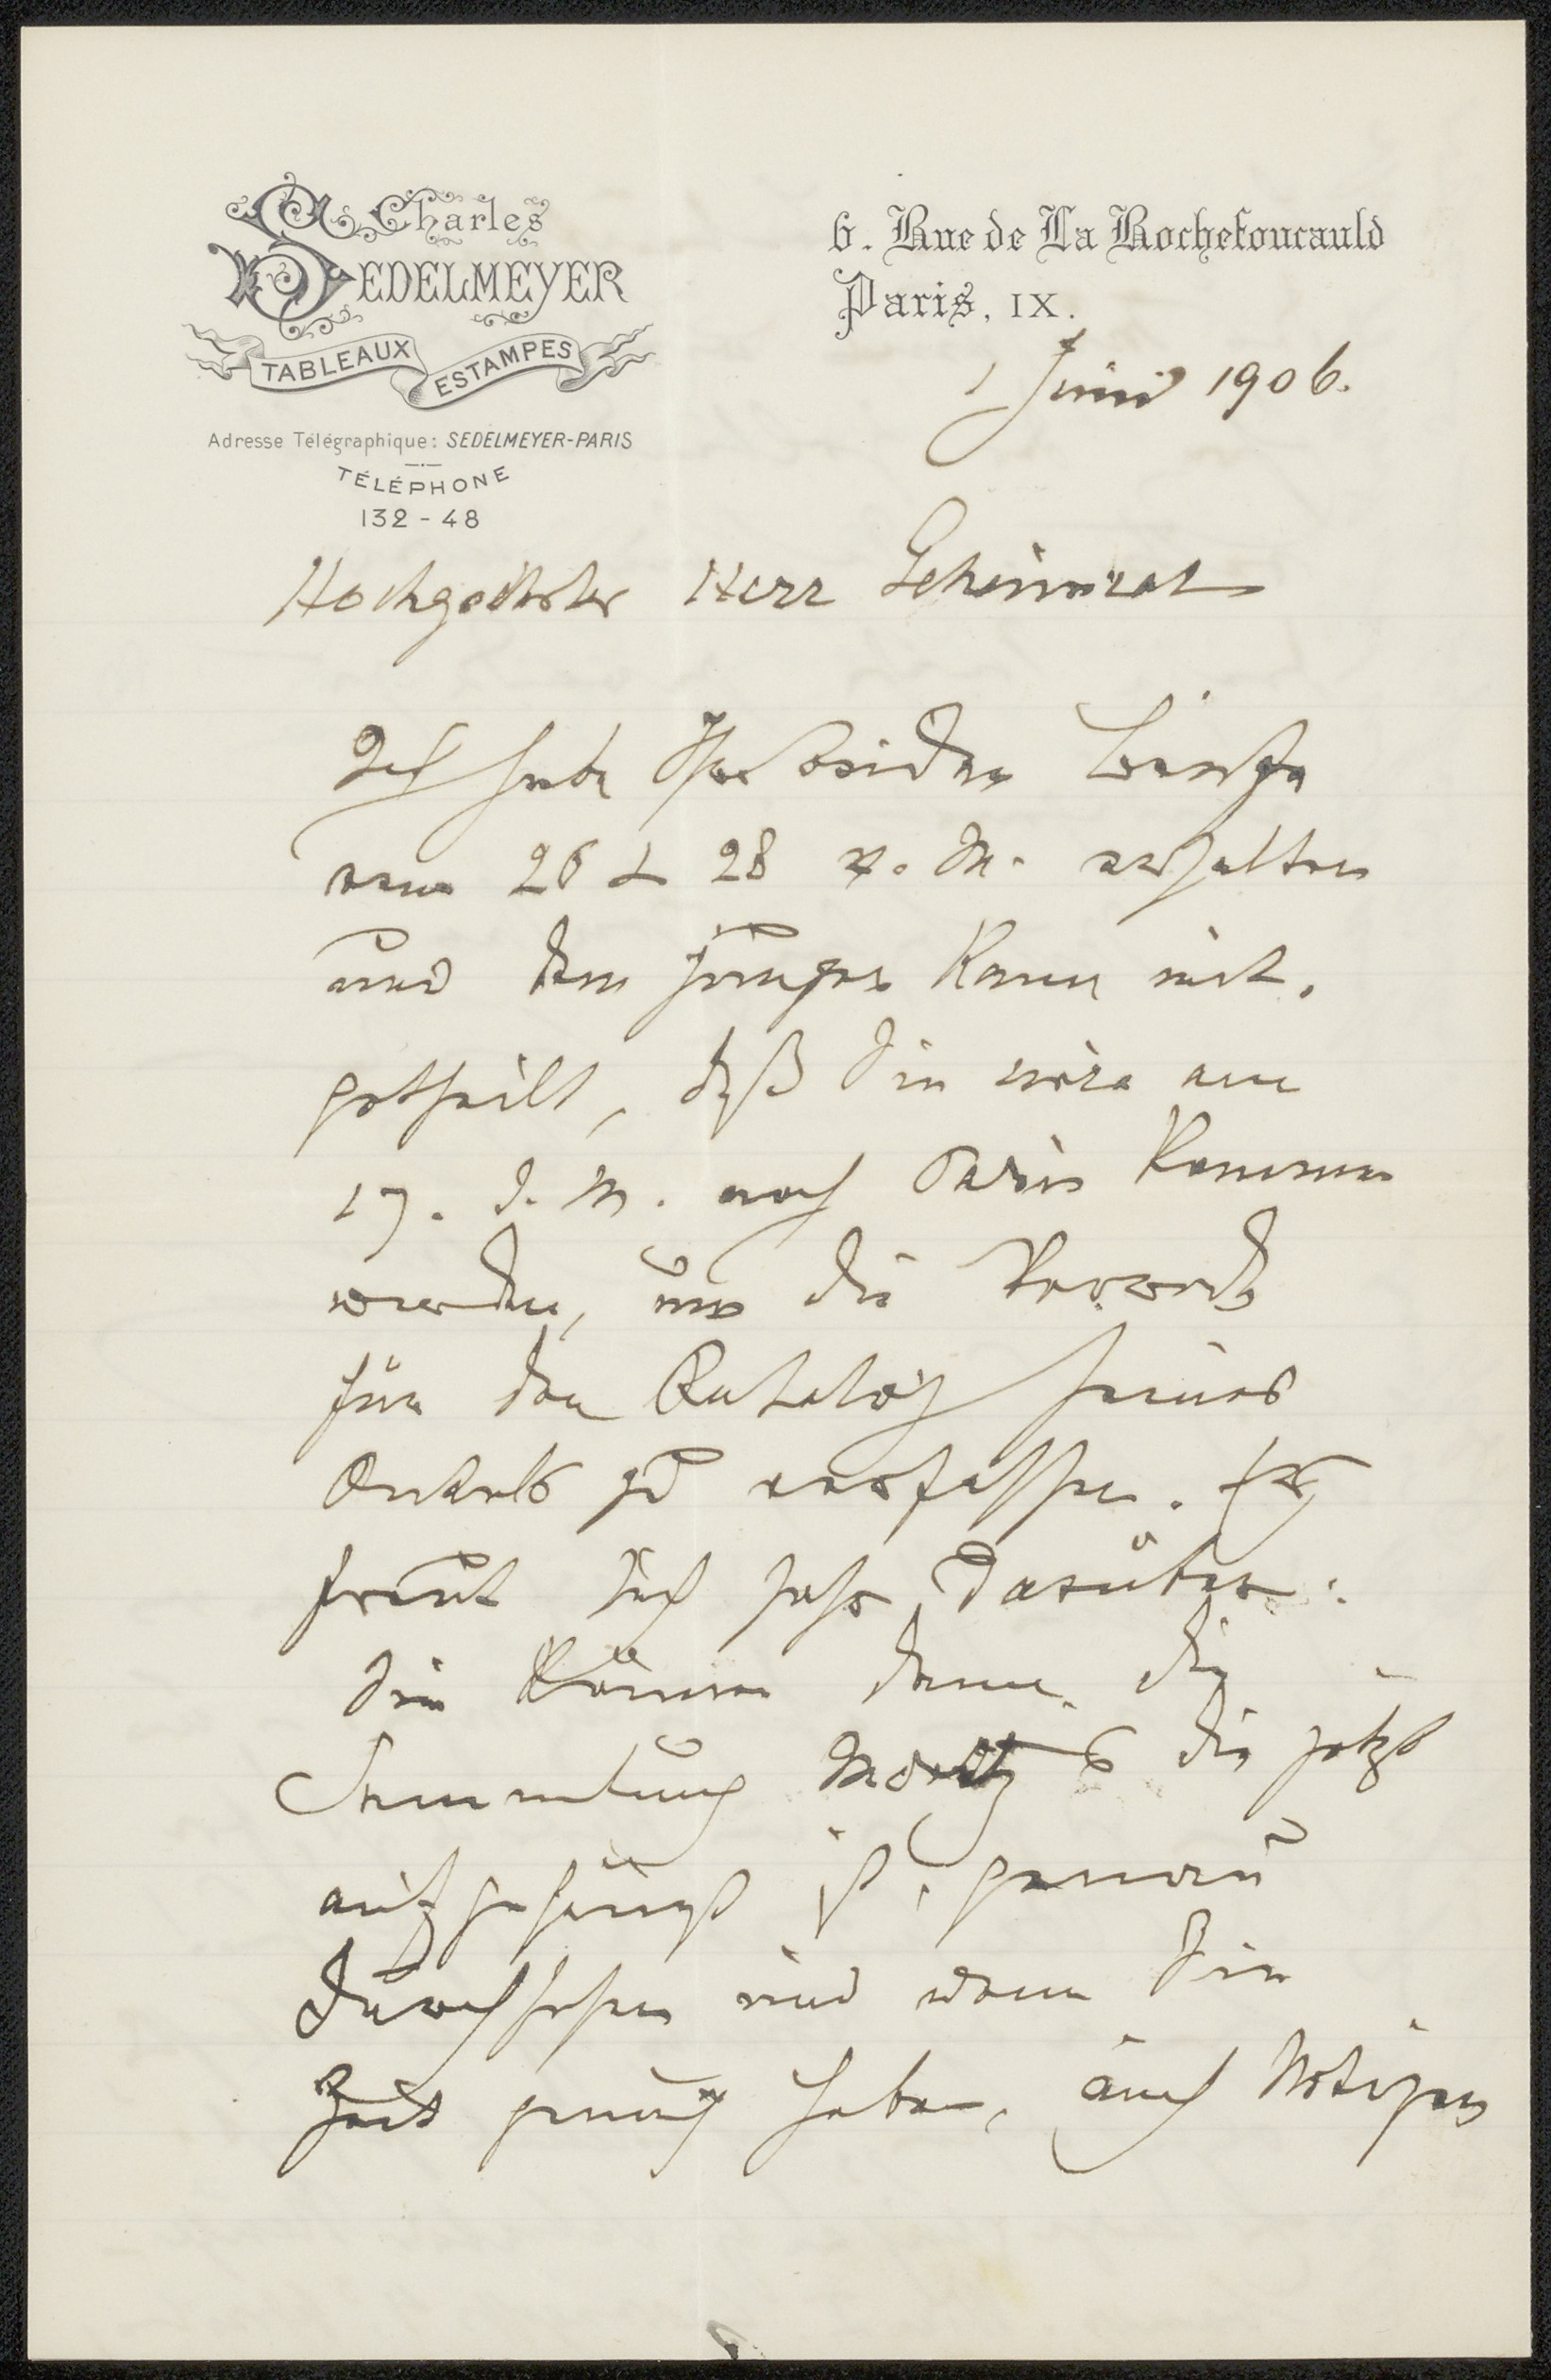 Charles
SEDELMEYER
TABLEAUX ESTAMPES
Adresse Télégraphique: SEDELMEYER-PARIS
TÉLÉPHONE
132-48
6. Rue de La Rochefoucauld
Paris, IX.
1 Juni 1906.
Hochgeehrter Herr Geheimrat
Ich habe Ihre beiden Briefe
vom 26 & 28 v. M. erhalten
und dem jungen Kann mit-
getheilt, daß Sie circa am
17. d. M. nach Paris kommen
werden, um die Vorrede
für den Catalog seines
Onkels zu verfassen. Er
freut sich sehr darüber.
Sie können dann die
Sammlung Moritz die jetzt
aufgehängt ist, genau
durchsehen und wenn Sie
Zeit genug haben, auch Notizen